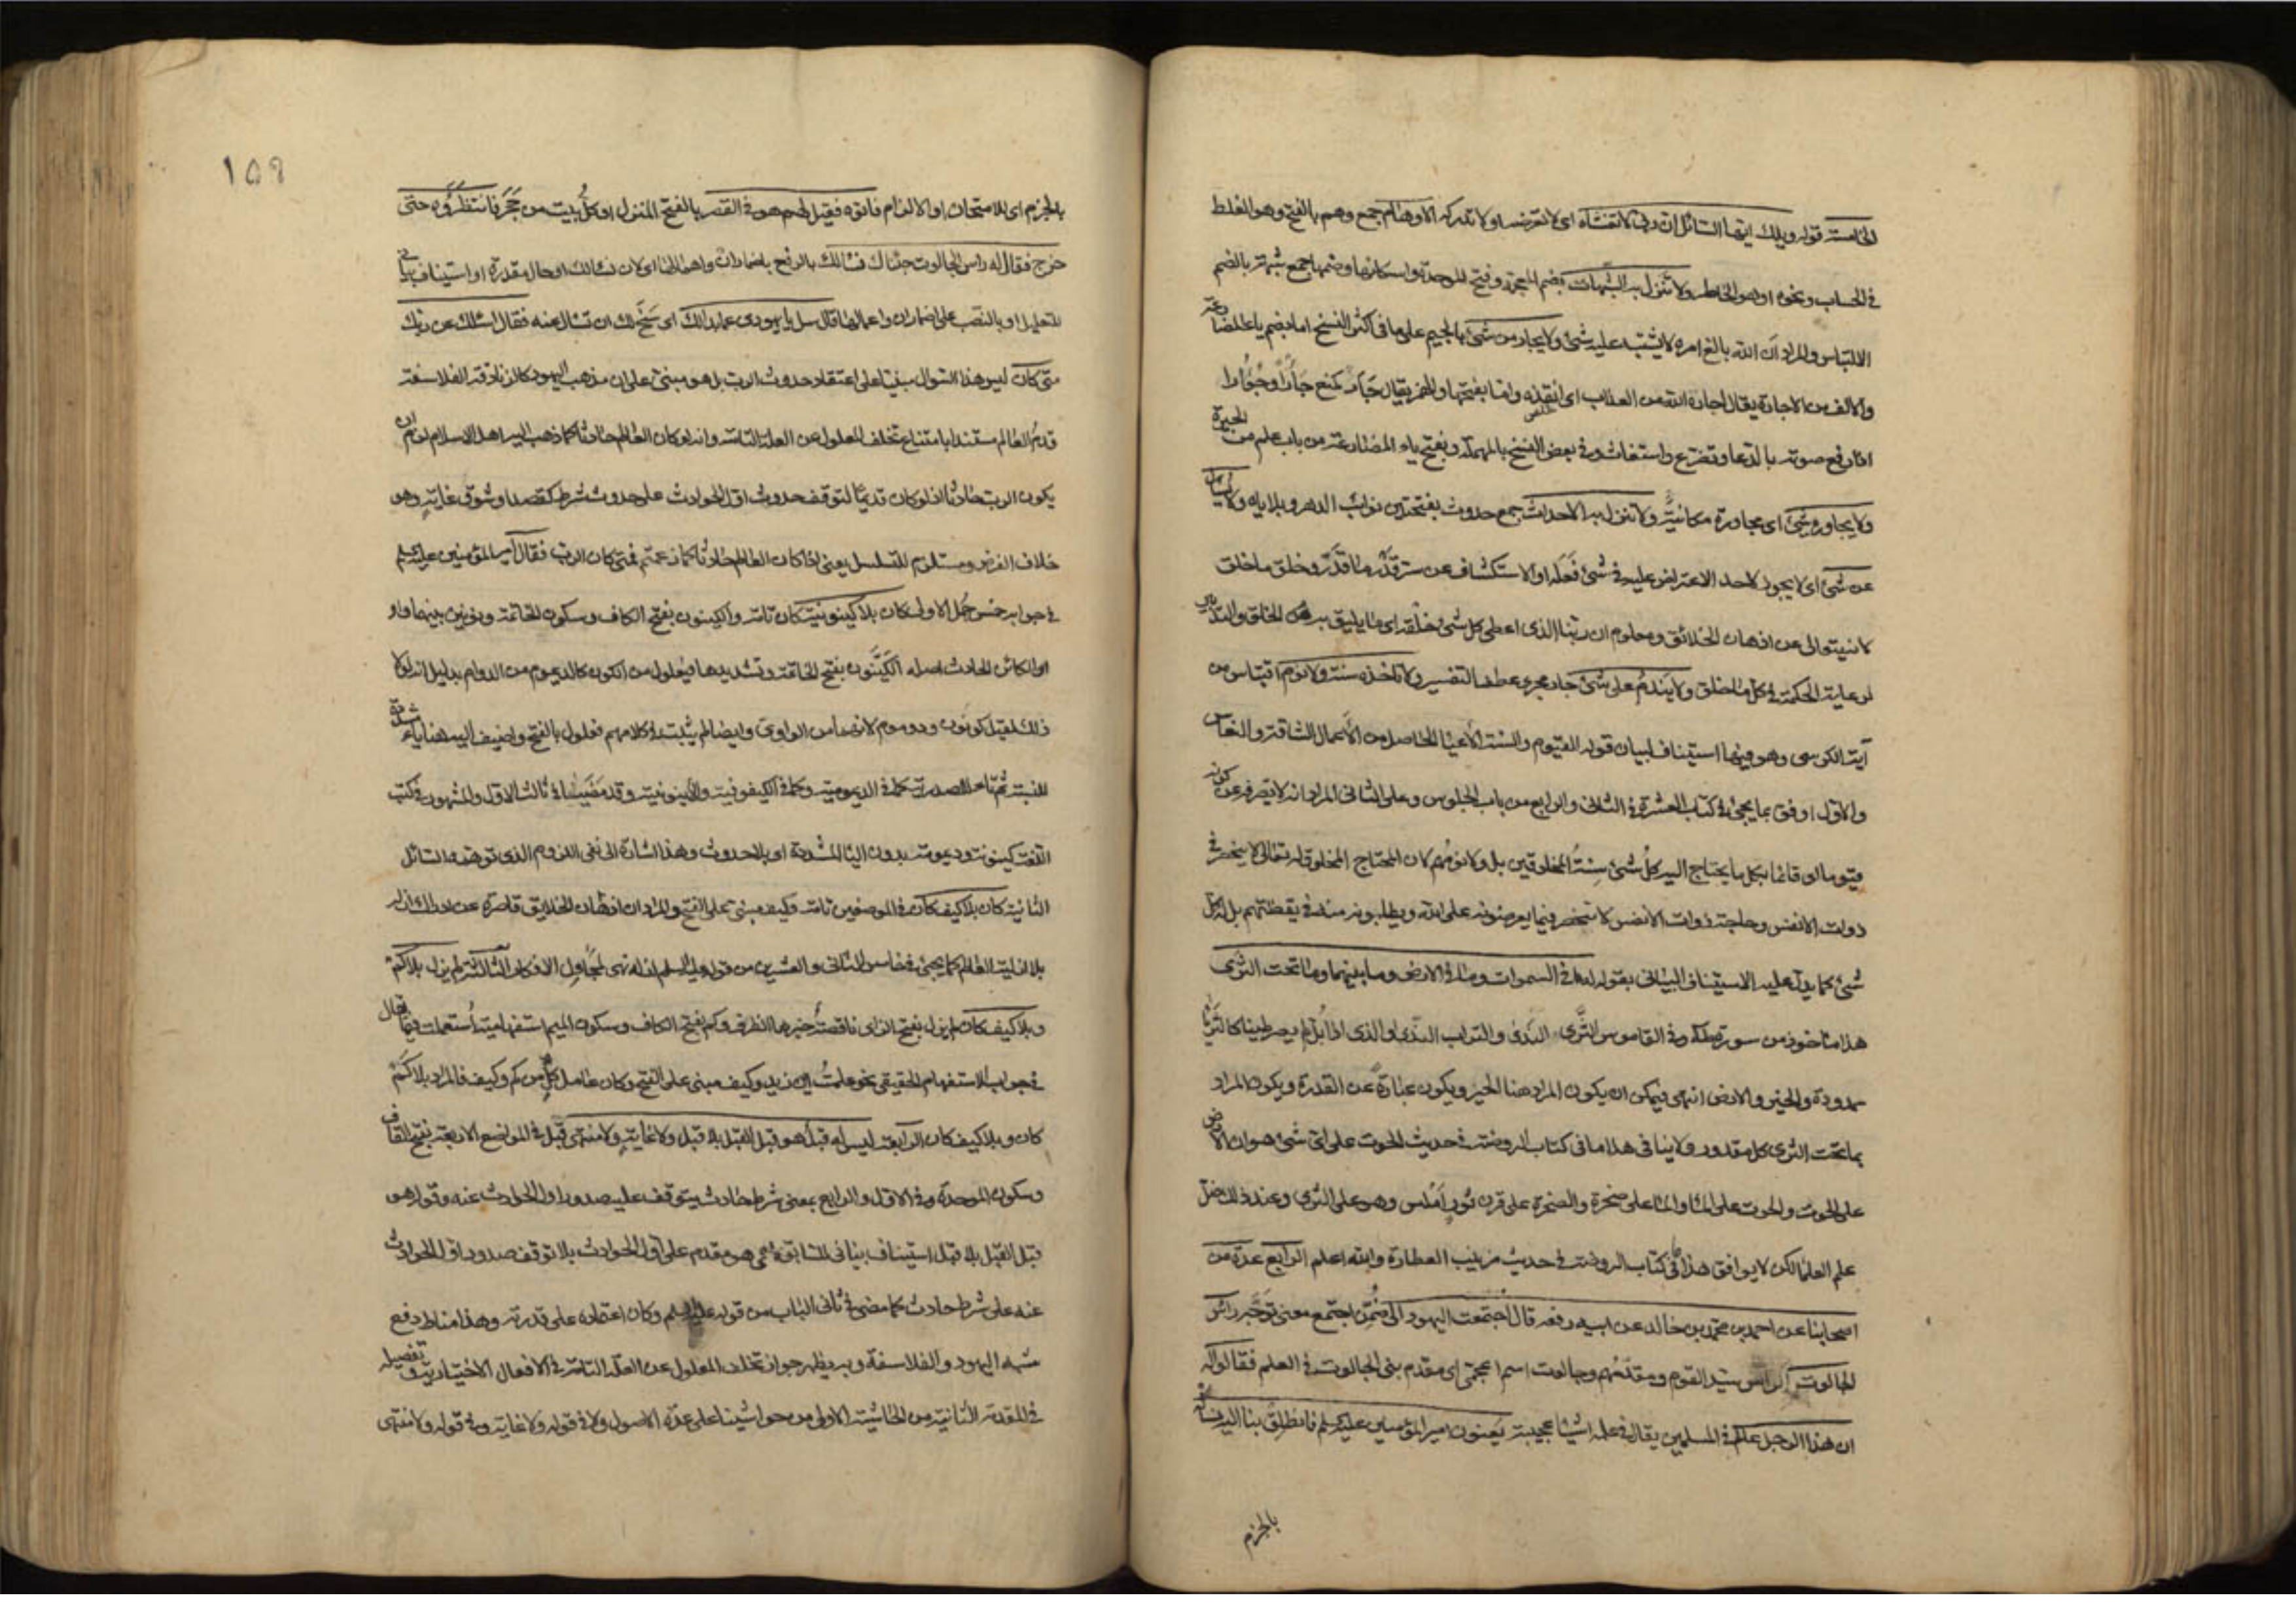 الخامسة قوله ويلك ايها السائل ان ربي لا تغشاه اي لا تعرضه ولا تدركه الاوهام جمع وهم بالفتح وهو الغلط
في الحساب ونحوه او هو الخاطر ولا تنزل به الشبهات بضم المعجمة وفتح الموحدة واسكانها وضمها جمع شبهة بالضم
الالتباس والمراد ان الله بالغ امره لا يشتبه عليه شئ ولا يجار من شئ بالجيم على ما في اكثر النسخ اما بضم ياء المضارعة
والالف من الاجارة يقال اجاره الله من العذاب اي انقذه واما بفتحها والهمز يقال جأر كمنع جأرا وجؤارا
اذا رفع صوته بالدعا وتضرع واستغاث وفي بعض النسخ بالمهملة وبفتح ياء المضارعة من باب علم من الحيرة
ولا يجاوره شئ اي مجاورة مكانية ولا تنزل به الاحداث جمع حدوث بفتحتين نوائب الدهر وبلاياه ولا يسأل
عن شئ اي لا يجوز لاحد الاعتراض عليه في شئ فعله او الاستكشاف عن سر قدر ما قدر وخلق ما خلق
لانه يتعالى عن اذهان الخلائق ومعلوم ان ربنا الذي اعطى كل شئ خلقه اي ما يليق به من الخلق والتدبير
لرعاية الحكمة في كل ما خلق ولا يندم على شئ جار مجرى عطف التفسير ولا تأخذه سنة ولا نوم اقتباس من
آية الكرسي وهو فيها استيناف لبيان قوله القيوم والسنة الاعيا الحاصل من الاعمال الشاقة والنعاس
والاول اوفق بما يجئ في كتاب العشرة في الثاني والرابع من باب الجلوس وعلى الثاني المراد انه لا يصرفه عن كونه
قيوما اي قائما بكل ما يحتاج اليه كل شئ سنة المخلوقين بل ولا نومهم لان المحتاج المخلوق له تعالى لا ينحصر في
ذوات الانفس وحاجة ذوات الانفس لا تنحصر فيما يعرضونه على الله ويطلبونه منه في يقظتهم بل له كل
شئ كما يدل عليه الاستيناف البياني بقوله له ما في السموات وما في الارض وما بينهما وما تحت الثرى
هذا مأخوذ من سورة طه وفي القاموس الثرى الندى والتراب الندي او الذي اذا بل لم يصر طينا كالثرياء
ممدودة والخير والارض انتهى فيمكن ان يكون المراد هنا الخير ويكون عبارة عن القدرة ويكون المراد
بما تحت الثرى كل مقدور ولا ينافي هذا ما في كتاب الروضة في حديث الحوت على اي شئ هو ان الارض
على الحوت والحوت على الماء والماء على صخرة والصخرة على قرن ثور املس وهو على الثرى وعند ذلك ضل
علم العلما لكن لا يوافق هذا ما في كتاب الروضة في حديث زينب العطارة والله اعلم الرابع عدة من
اصحابنا عن احمد بن محمد بن خالد عن ابيه رفعه قال اجتمعت اليهود الى ضمن اجتمع معنى توجه رأس
الجالوت الرأس سيد القوم ومقدمهم وجالوت اسم اعجمي اي مقدم بني الجالوت في العلم فقالوا له
ان هذا الرجل عالم في المسلمين يقال في علمه اشيا عجيبة يعنون امير المؤمنين عليه السلم فانطلق بنا اليه نسأله
بالجزم
١٥٩
بالجزم اي للامتحان او الالزام فاتوه فقيل لهم هو في القصر بالفتح المنزل او كل بيت من حجر فانتظروه حتى
خرج فقال له رأس الجالوت جئناك نسألك بالرفع باضمار ان واهمالها اي لان نسألك او حال مقدرة او استيناف بياني
للتعليل او بالنصب على اضمار ان واعمالها قال سل يا يهودي عما بدا لك اي سنح لك ان تسأل عنه فقال اسئلك عن ربك
متى كان ليس هذا السؤال مبنيا على اعتقاد حدوث الرب بل هو مبني على ان مذهب اليهود كالزنادقة الفلاسفة
قدم العالم مستندا بامتناع تخلف المعلول عن العلة التامة وانه لو كان العالم حادثا كما ذهب اليه اهل الاسلام لزم ان
يكون الرب حادثا اذ لو كان قديما لتوقف حدوث اول الحوادث على حدوث شرط كقصد او شوق غاية وهو
خلاف الفرض ومستلزم للتسلسل يعني اذا كان العالم حادثا كما زعمتم فمتى كان الرب فقال امير المؤمنين عليه السلم
في جوابه خمس جمل الاولى كان بلا كينونية كان تامة والكينون بفتح الكاف وسكون الخاتمة ونونين بينهما واو
اي الكائن الحادث اصله الكينون بفتح الخاتمة وتشديدها فيعلول من الكون كالديموم من الدوام بدليل انه لولا
ذلك لقيل كونون ودوموم لانهما من الواوي وايضا لم يثبت في كلامهم فعلول بالفتح واضيف اليه هنا ياء مشددة
للنسبة ثم تاء المصدرية كما في الديمومية وكما في الكيفوفية والاينونية وقد مضيتا في ثالث الاول والمشهور في كتب
اللغة كينونة وديمومة بدون اليا المشددة اي بلا حدوث وهذا اشارة الى نفي اللزوم الذي توهمه السائل
الثانية كان بلا كيف كان في الموضعين تامة وكيف مبني على الفتح والمراد ان اذهان الخلايق قاصرة عن ادراك ان له
بلا ازلية العالم كما يجئ في خامس الثاني والعشرين من قوله عليه السلم ازله نهي لمجاول الافكار الثالثة لم يزل بلا كم
وبلا كيف كان لم يزل بفتح الزاي ناقصة خبرها الظرف وكم بفتح الكاف وسكون الميم استفهامية استعملت فيما يقال
في جواب الاستفهام الحقيقي نحو علمت اين زيد وكيف مبني على الفتح وكان عامل كل من كم وكيف فالمراد بلا كم
كان وبلا كيف كان الرابعة ليس له قبل هو قبل القبل بلا قبل ولا غاية ولا منتهى قبل في المواضع الاربعة بفتح القاف
وسكون الموحدة وفي الاول والرابع بمعنى شرط حادث يتوقف عليه صدور اول الحوادث عنه وقوله هو
قبل القبل بلا قبل استيناف بياني للسابقة اي هو مقدم على اول الحوادث بلا توقف صدور اول الحوادث
عنه على شرط حادث كما مضى في ثاني الباب من قوله عليه السلم وكان اعتماده على قدرته وهذا مناط دفع
شبهة اليهود والفلاسفة وبه يظهر جواز تخلف المعلول عن العلة التامة في الافعال الاختيارية وتفصيله
في المقدمة الثانية من الحاشية الاولى من حواشينا على عدة الاصول ولا في قوله ولا غاية وفي قوله ولا منتهى